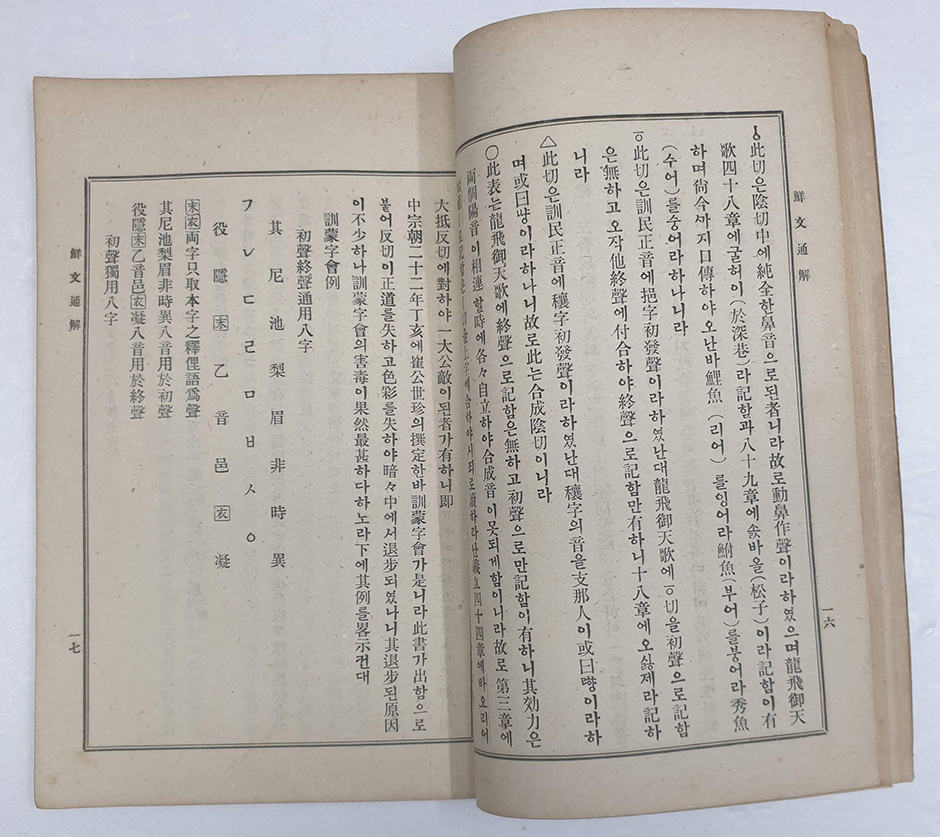 鮮文通解
一六
ㆁ此切은陰切中에純全한鼻音으로된者니라故로動鼻作聲이라하였으며龍飛御天
歌四十八章에굴허이(於深巷)라記함과八十九章에솘바올(松子)이라記함이有
하며尙今까지口傳하야오난바鯉魚(리어)를잉어라鮒魚(부어)를붕어라秀魚
(수어)를숭어라하나니라
ㆆ此切은訓民正音에挹字初發聲이라하였난대龍飛御天歌에ㆆ切을初聲으로記함
은無하고오작他終聲에付合하야終聲으로記함만有하니十八章에오싫제라記하
니라
△此切은訓民正音에穰字初發聲이라하였난대穰字의音을支那人이或曰이라하
며或曰이라하나니故로此는合成陰切이니라
○此表는龍飛御天歌에終聲으로記함은無하고初聲으로만記함이有하니其効力은
両個陽音이相連할時에各々自立하야合成音이못되게함이니라故로第三章에
四十四章에바오리어
大抵反切에對하야一大公敵이된者가有하니即
中宗朝二十二年丁亥에崔公世珍의撰定한바訓蒙字會가是니라此書가出함으로
붙어反切이正道를失하고色彩를失하야暗々中에서退步되였나니其退步된原因
이不少하나訓蒙字會의害毒이果然最甚하다하노라下에其例를畧示컨대
訓蒙字會例
初聲終聲通用八字
其尼池梨眉非時異
ㄱㄴㄷㄹㅁㅂㅅㆁ
役隱末乙音邑衣凝
末衣両字只取本字之釋俚語爲聲
其尼池梨眉非時異八音用於初聲
役隱末乙音邑衣凝八音用於終聲
初聲獨用八字
鮮文通解
一七